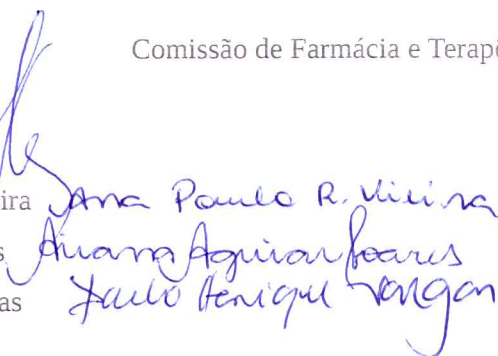 Comissão de Farmácia e Terapê
ira Ana Paula R. Vieira
s Aguiar Soares
as Paulo Henrique Vargas